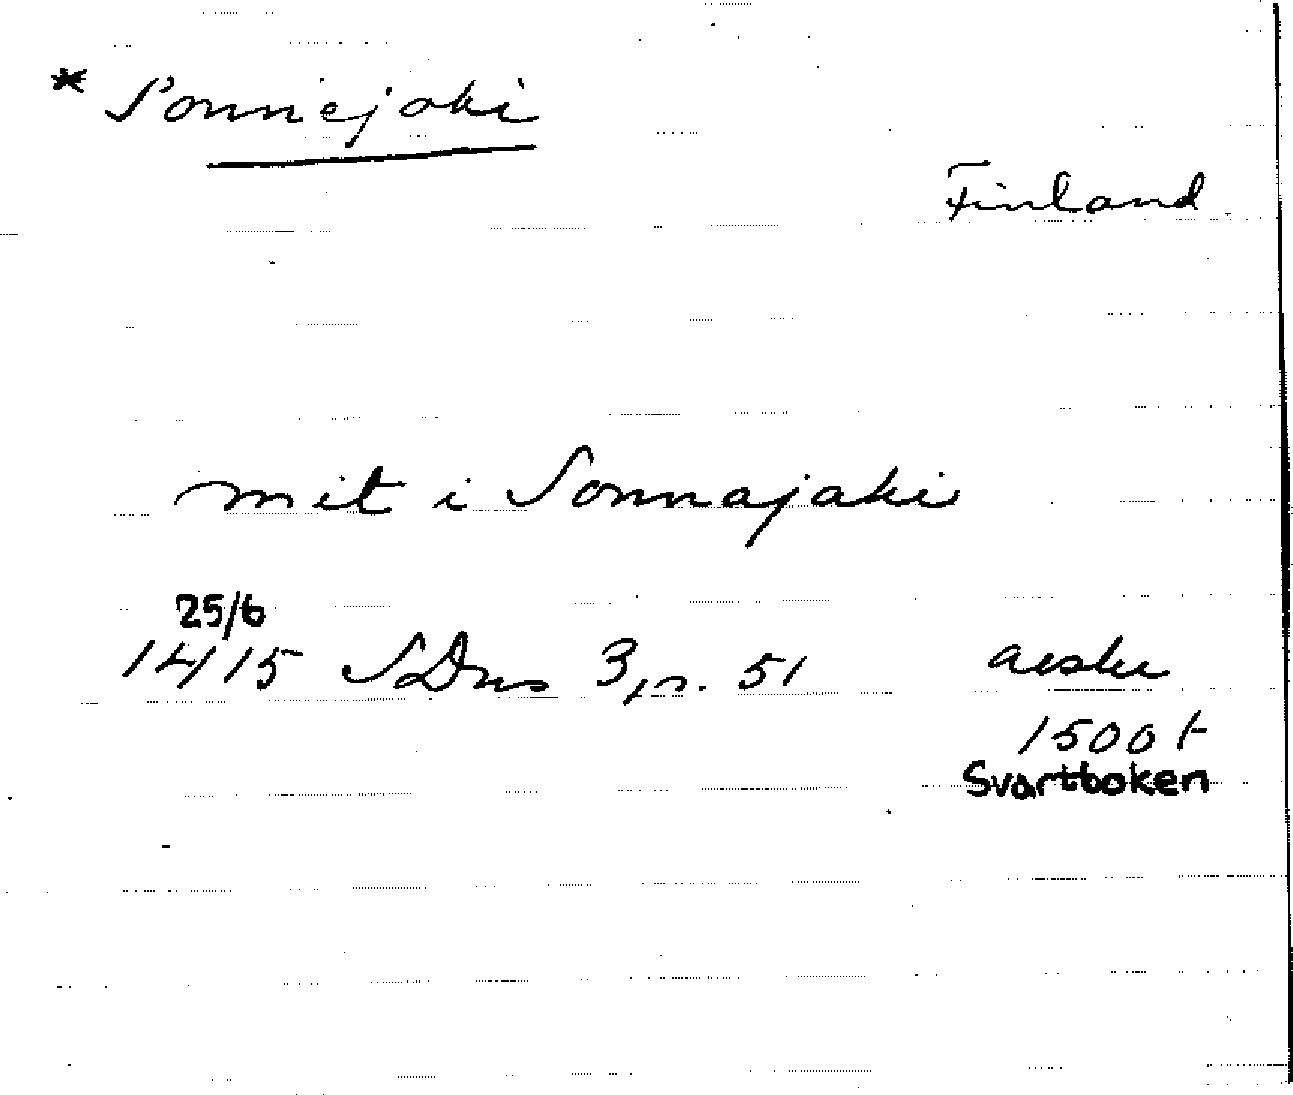 * Sonnejoki
Finland
mit i Sonnajaki
25/6
1415 SDns 3, n. 51 aeske
1500 t
Svartboken